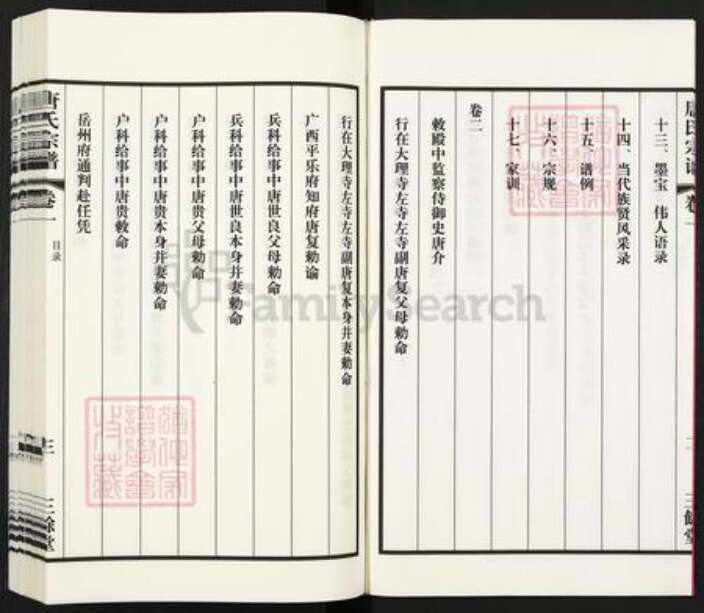 唐氏宗谱 卷一
十三、墨宝 伟人语录
十四、当代族贤风采录
十五、谱例
十六、宗规
十七、家训
卷二
敕殿中监察侍御史唐介
行在大理寺左寺左寺副唐复父母勅命
二
三馀堂
行在大理寺左寺左寺副唐复本身并妻勅命
广西平乐府知府唐复勅谕
兵科给事中唐世良父母勅命
兵科给事中唐世良本身并妻勅命
户科给事中唐贵父母勅命
户科给事中唐贵本身并妻勅命
户科给事中唐贵敕命
岳州府通判赴任凭
唐氏宗谱 卷一 目录
三
三馀堂
FamilySearch